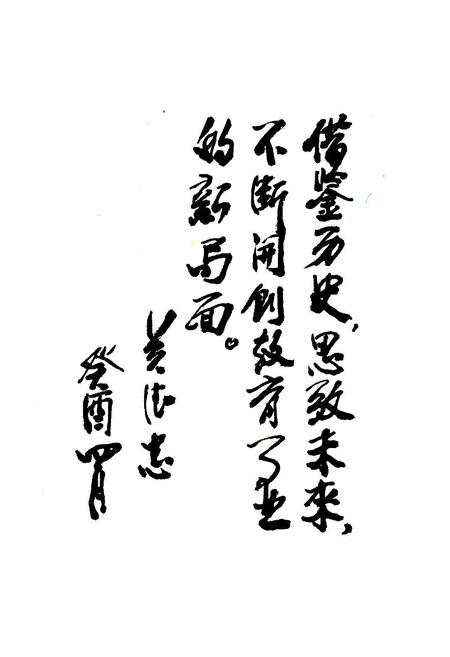 借鉴历史，思致未來，
不断开创教育事业
的新局面。
癸酉四月